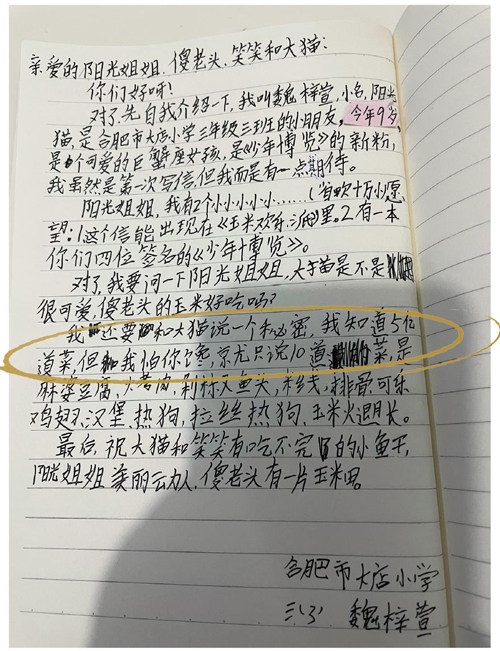 亲爱的阳光姐姐、傻老头、笑笑和大猫：
你们好呀！
对了,先自我介绍一下,我叫魏梓萱,小名,阳光
猫,是合肥市大店小学三年级三班的小朋友,今年9岁,
是个可爱的巨蟹座女孩,是《少年博览》的新粉,
我虽然是第一次写信,但我而是有一点期待。
阳光姐姐,我有2个小小小小小……(省略十万小)愿
望:1这个信能出现在《玉米欢乐派》里。2有一本
你们四位签名的《少年博览》。
对了,我要问一下阳光姐姐,大猫是不是
很可爱,傻老头的玉米好吃吗?
我还要和大猫说一个秘密,我知道5亿
道菜,但我怕你馋,京尤只说10道菜,是
麻婆豆腐、火考肉,剁椒火鱼头,米线,排骨,可乐
鸡翅,汉堡,热狗,拉丝热狗,玉米火退长。
最后,祝大猫和笑笑有吃不完的小鱼干,
阳光姐姐美丽云力人,傻老头有一片玉米田。
合肥市大店小学
三(3) 魏梓萱